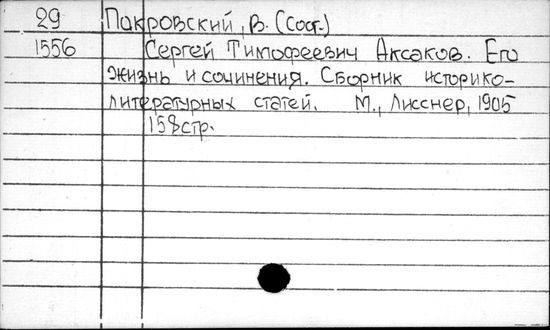 29 Покровский, В. (Сост.)
1556 Сергей Тимофеевич Аксаков. Его
жизнь и сочинения. Сборник историко-
литературных статей. М., Лисснер, 1905
158стр.